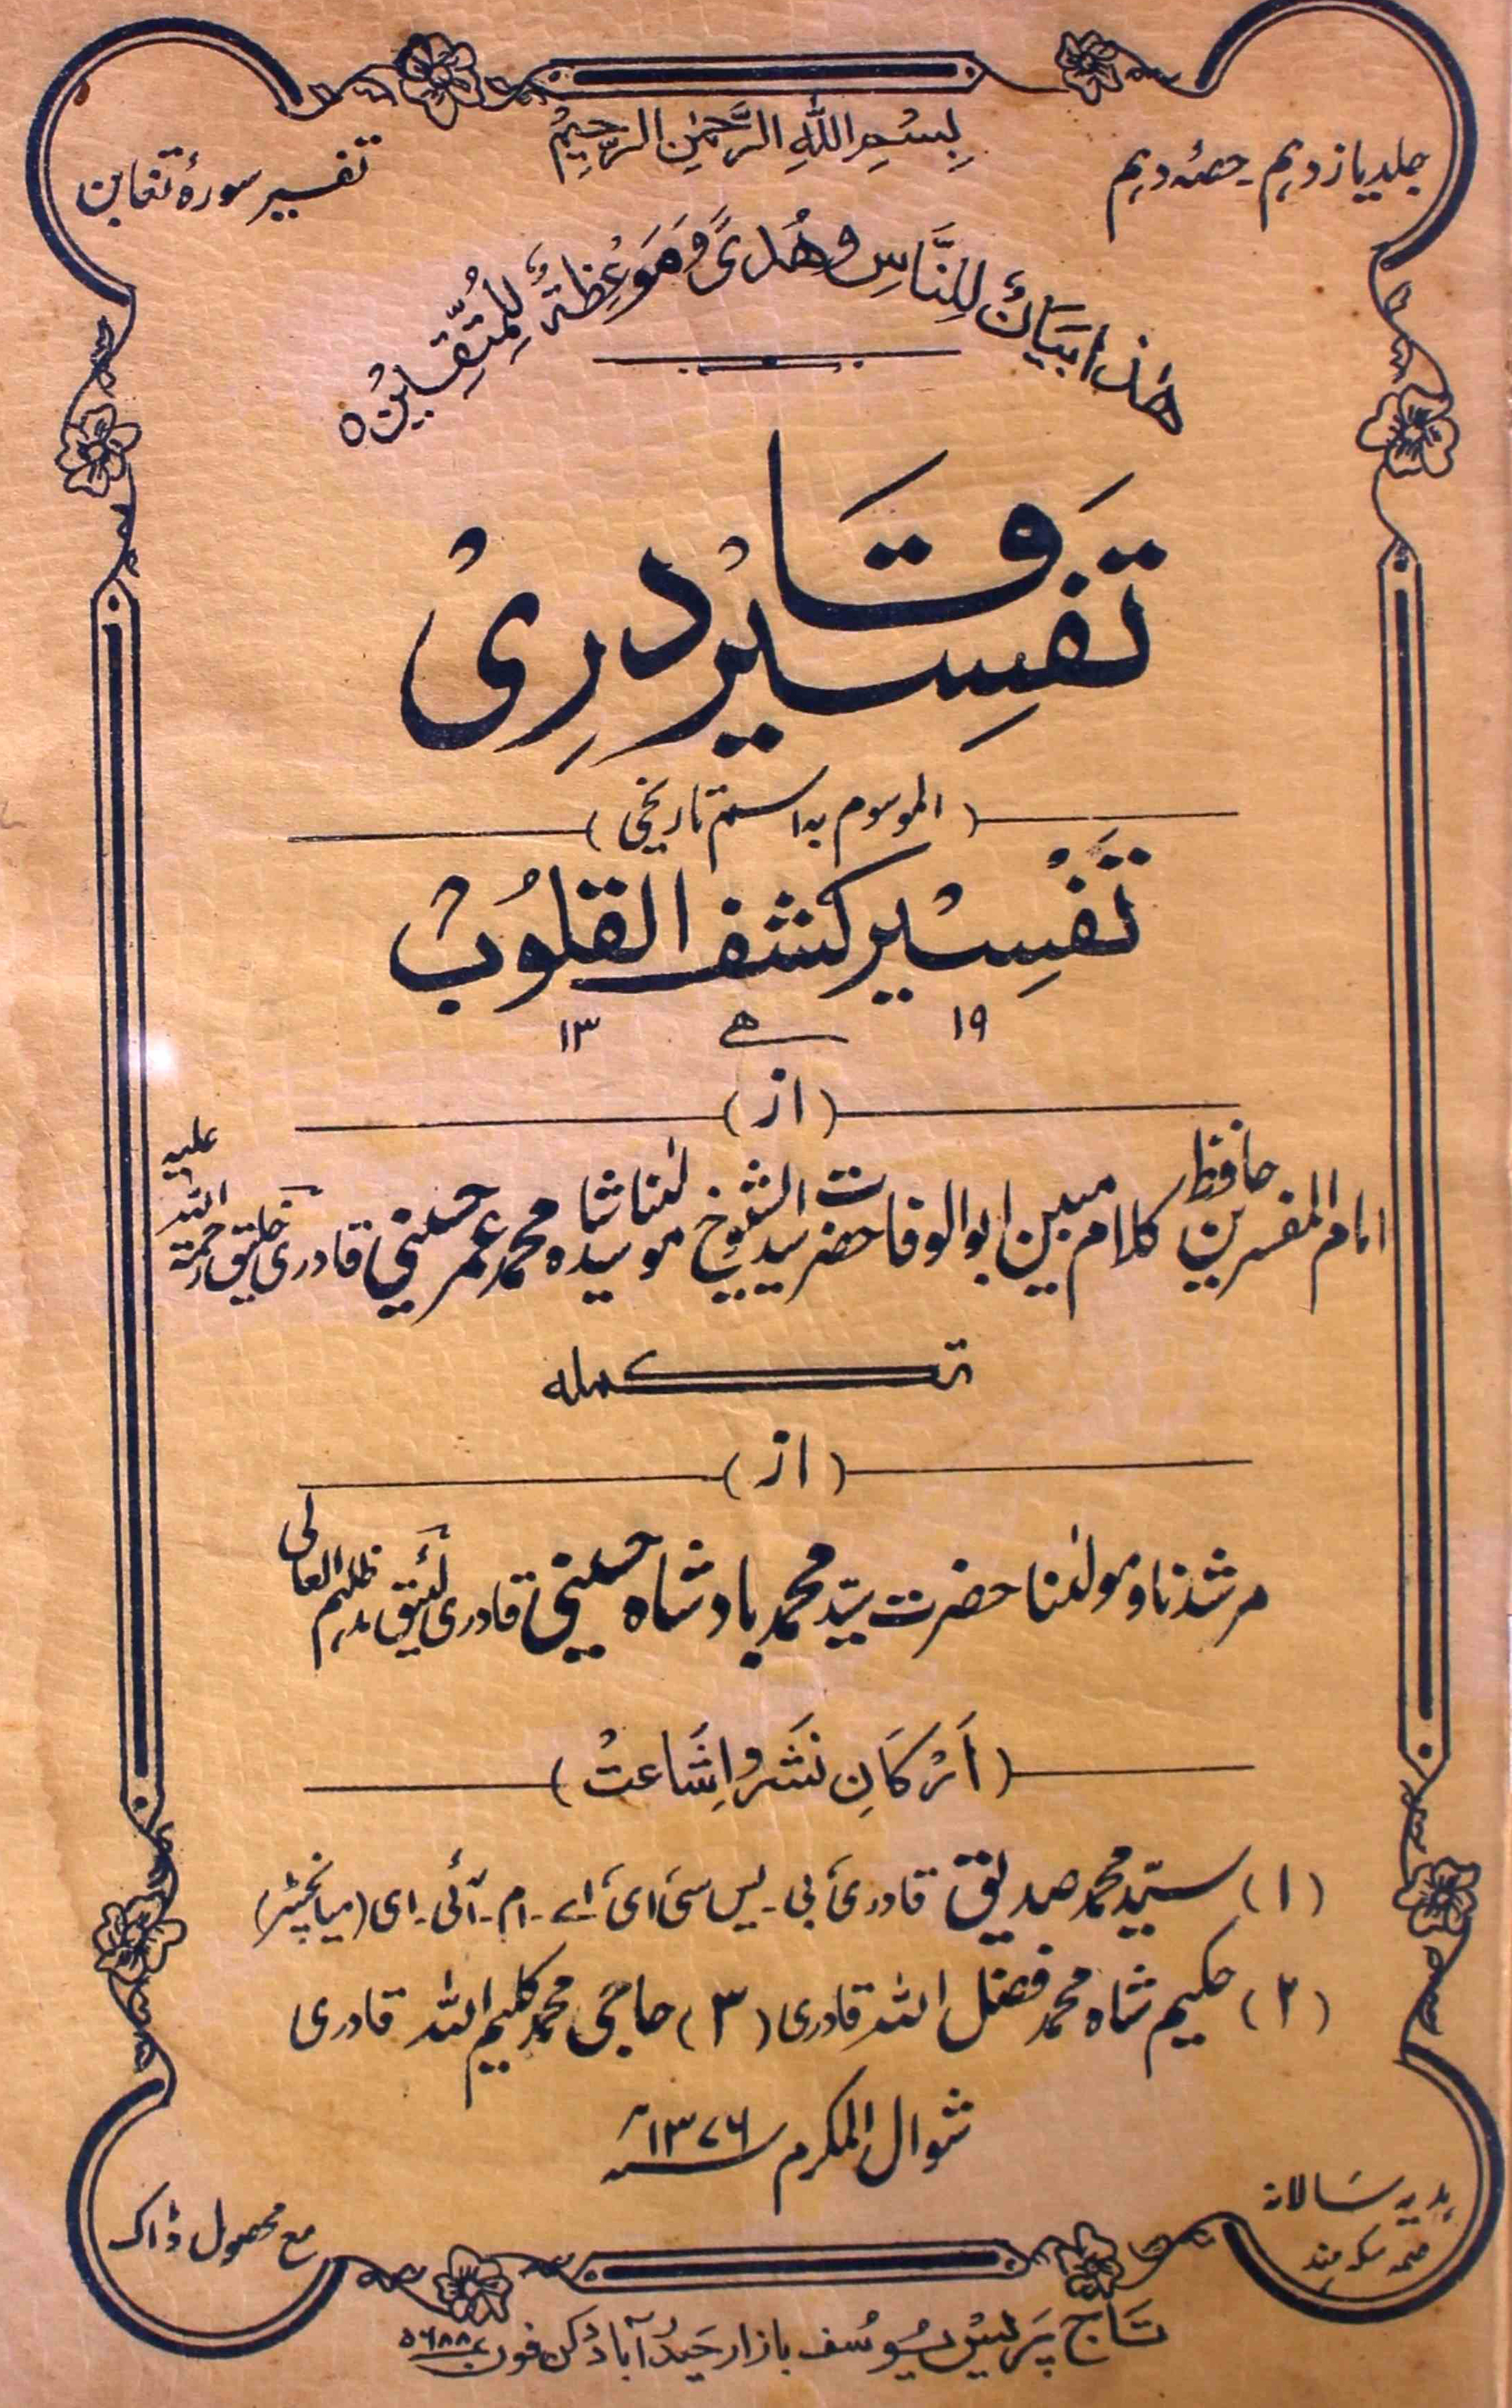 جلد یازدہم۔ حصۂ دہم
بِسْمِ اللّٰهِ الرَّحْمٰنِ الرَّحِيْمِ
تفسیر سورۂ تغابن
هٰذَا بَيَانٌ لِلنَّاسِ وَهُدًى وَّمَوْعِظَةٌ لِّلْمُتَّقِيْنَ ٥
تَفسِیر قَادرِیْ
(الموسوم بہ اسم تاریخی)
تَفْسِیْر کشف القلُوبْ
۱۹ ھ ۱۳
(از)
امام المفسرین حافظ کلام مبین ابوالوفا حضرت سید الشیوخ مولٰنا سید شاہ محمد عمر حسینی قادری خلیق رحمۃ اللہ علیہ
تکملہ
(از)
مرشدنا و مولٰنا حضرت سیّد محمد بادشاہ حسینی قادری لئیق مدظلہم العالی
(اَرْکَانِ نَشَر و اِشَاعتْ)
(۱) سیّد محمد صدیق قادری بی۔یس سی ای اے۔ام۔آئی۔ای (میانچسٹر)
(۲) حکیم شاہ محمد فضل اللہ قادری (۳) حاجی محمد کلیم اللہ قادری
شوال المکرم ۱۳۷۶ھ
ہدیہ سَالانہ
سکہ ہند
مع محصول ڈاک
تَاج پَریْس یُوسُف بازار حَیدْرآبادْ دکن فون